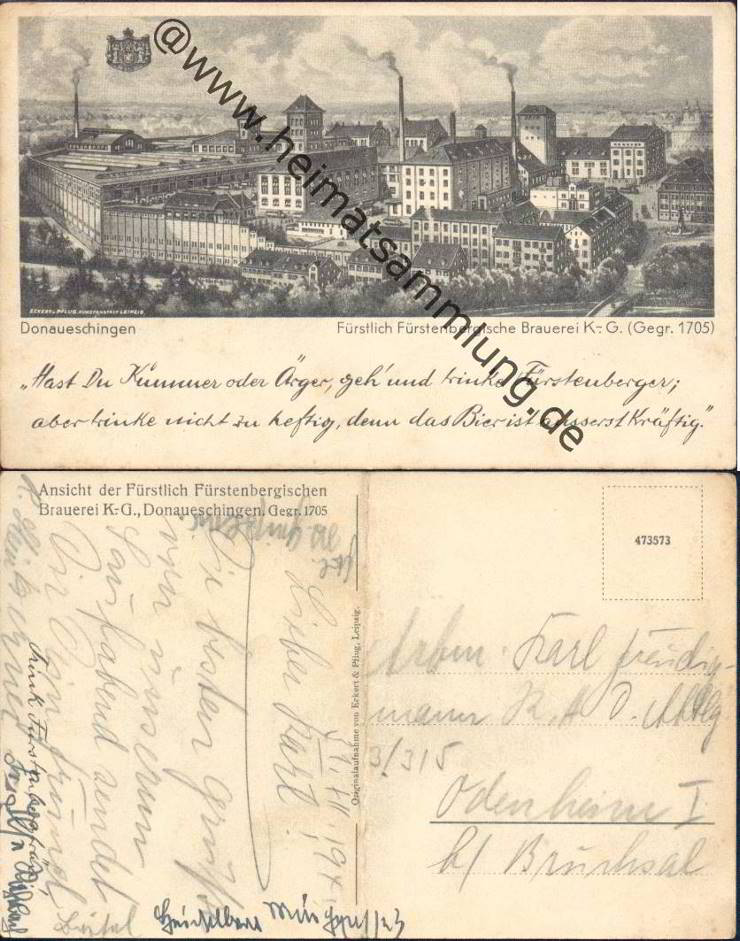 @www.heimatsammlung.de
ECKERT & PFLUG, KUNSTANSTALT LEIPZIG
Donaueschingen
Fürstlich Fürstenbergische Brauerei K.-G. (Gegr. 1705)
„Hast Du Kummer oder Ärger, geh' und trinke Fürstenberger;
aber trinke nicht zu heftig, denn das Bier ist äusserst Kräftig."
Ansicht der Fürstlich Fürstenbergischen
Brauerei K.-G., Donaueschingen. Gegr. 1705
473573
Originalaufnahme von Eckert & Pflug, Leipzig.
Lieber Karl!
Die besten Grüße
von unserem
sendet
Dir Dein Freund
Karl
mann R. A. D. Abtlg
3/315
Odenheim I
b/ Bruchsal